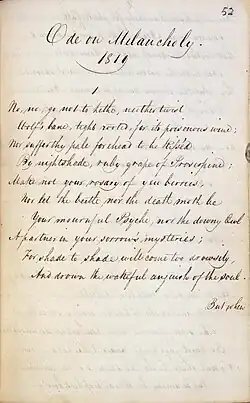 52
Ode on Melancholy.
1819
1
No, no, go not to Lethe, neither twist
Wolf's bane, tight rooted, for its poisonous wine;
Nor suffer thy pale forehead to be kiss'd
By nightshade, ruby grape of Proserpine;
Make not your rosary of yew berries,
Nor let the beetle nor the death moth be
Your mournful Psyche, nor the downy Owl
A partner in your sorrow's mysteries;
For shade to shade will come too drowsily,
And drown the wakeful anguish of the soul.
But when